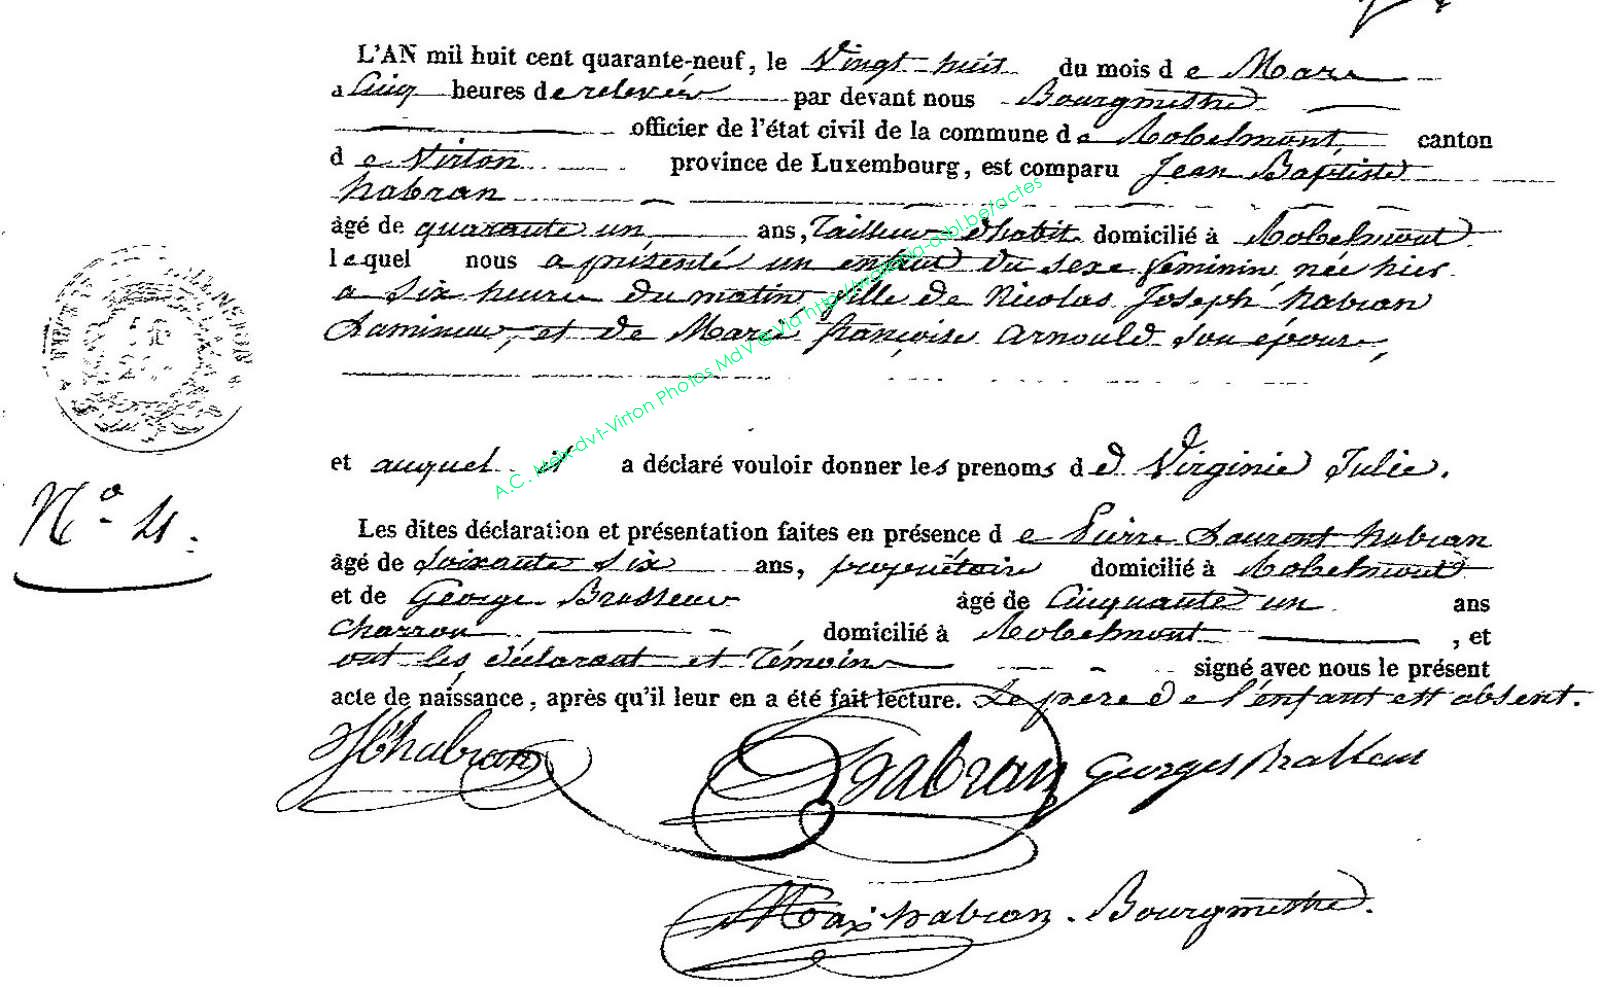 L'AN mil huit cent quarante-neuf, le Vingt huit du mois d e Mars
a Cinq heures de relevée par devant nous Bourgmestre
officier de l'état civil de la commune de Robelmont, canton
d e Virton province de Luxembourg, est comparu Jean Baptiste
habran
âgé de quarante un ans, Tailleur d'habit domicilié à Robelmont
lequel nous a présenté un enfant du sexe feminin, née hier
a six heures du matin, fille de Nicolas Joseph habran
Lamineur, et de Marie françoise Arnould son épouse,
et auquel il a déclaré vouloir donner les prenoms d e Virginie Julie.
N.º 4.
Les dites déclaration et présentation faites en présence d e Pierre Laurent habran
âgé de Soixante Six ans, propriétaire domicilié à Robelmont
et de George Brasseur âgé de Cinquante un ans
Charron, domicilié à Robelmont, et
ont les déclarant et Témoins signé avec nous le présent
acte de naissance, après qu'il leur en a été fait lecture. Le père de l'enfant est absent.
JBhabran Habran Georges Brasseur
Max habran. Bourgmestre.
A.C. Meix-dvt-Virton Photos MdV @ Via http://wallonia-asbl.be/actes